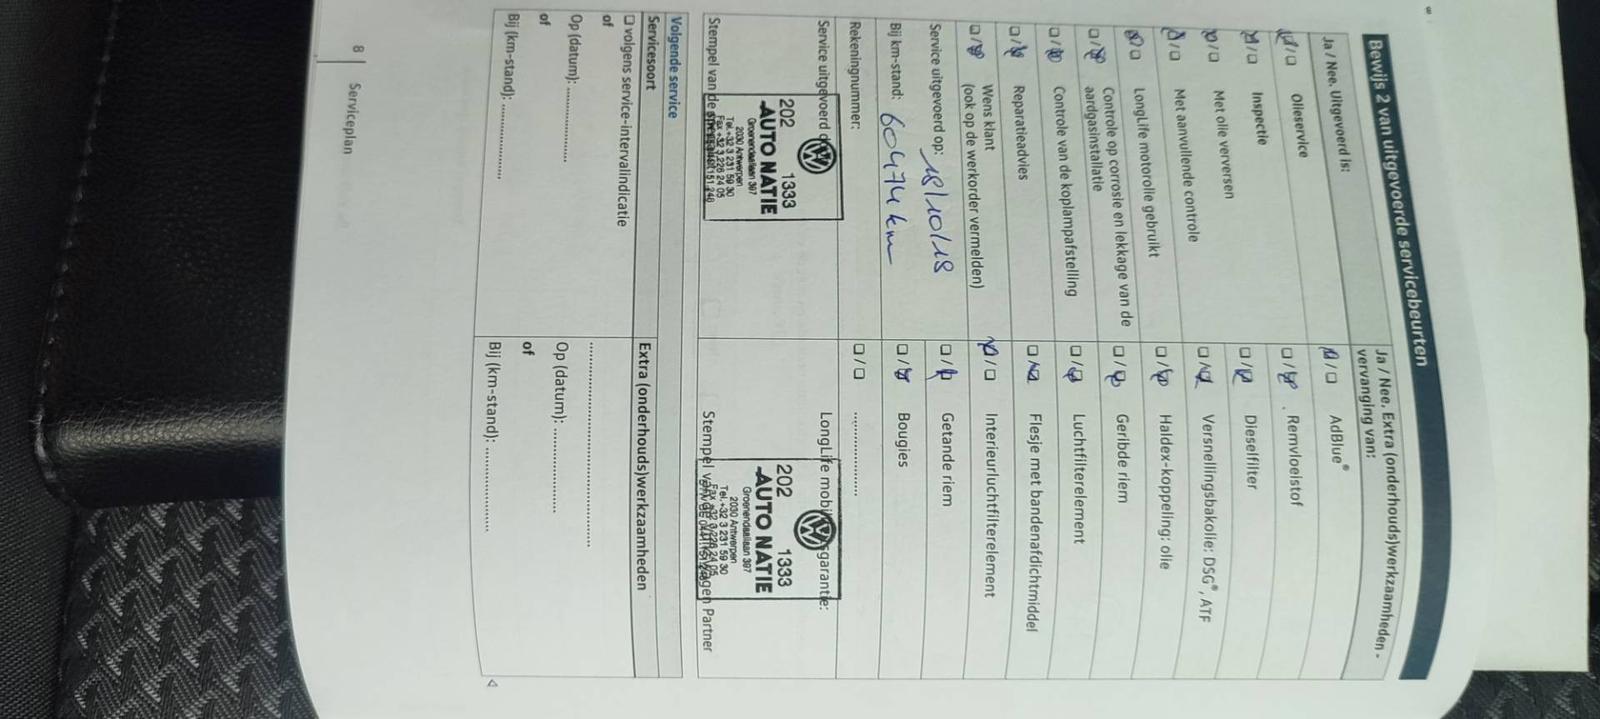 Bewijs 2 van uitgevoerde servicebeurten
Ja / Nee. Uitgevoerd is:
☒/☐ Olieservice
☒/☐ Inspectie
☒/☐ Met olie verversen
☒/☐ Met aanvullende controle
☒/☐ LongLife motorolie gebruikt
☐/☒ Controle op corrosie en lekkage van de
aardgasinstallatie
☐/☒ Controle van de koplampafstelling
☐/☒ Reparatieadvies
☐/☒ Wens klant
(ook op de werkorder vermelden)
Service uitgevoerd op: 18/10/18
Bij km-stand: 60474 km
Rekeningnummer:
Service uitgevoerd door:
202 1333
AUTO NATIE
Groenendaallaan 397
2030 Antwerpen
Tel. +32 3 231 59 30
Fax +32 3 226 24 05
Stempel van de
Ja / Nee. Extra (onderhouds)werkzaamheden -
vervanging van:
☒/☐ AdBlue®
☐/☒ Remvloeistof
☐/☒ Dieselfilter
☐/☒ Versnellingsbakolie: DSG®, ATF
☐/☒ Haldex-koppeling: olie
☐/☒ Geribde riem
☐/☒ Luchtfilterelement
☐/☒ Flesje met bandenafdichtmiddel
☒/☐ Interieurluchtfilterelement
☐/☒ Getande riem
☐/☒ Bougies
☐/☐ ................
LongLife mobiliteitsgarantie:
202 1333
AUTO NATIE
Groenendaallaan 397
2030 Antwerpen
Tel. +32 3 231 59 30
Fax +32 3 226 24 05
Stempel van Volkswagen Partner
Volgende service
Servicesoort
☐ volgens service-intervalindicatie
of
Op (datum): ................
of
Bij (km-stand): ................
Extra (onderhouds)werkzaamheden
................................
Op (datum): ................
of
Bij (km-stand): ................
8 Serviceplan